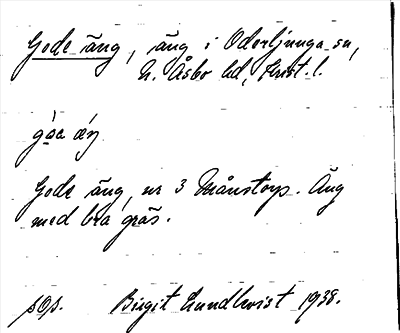 Gode äng, äng i Oderljunga sn,
N. Åsbo hd, Krist. l.
Gode äng, nr 3 Månstorp. Äng
med bra gräs.
sOp. Birgit Lundkvist 1938.